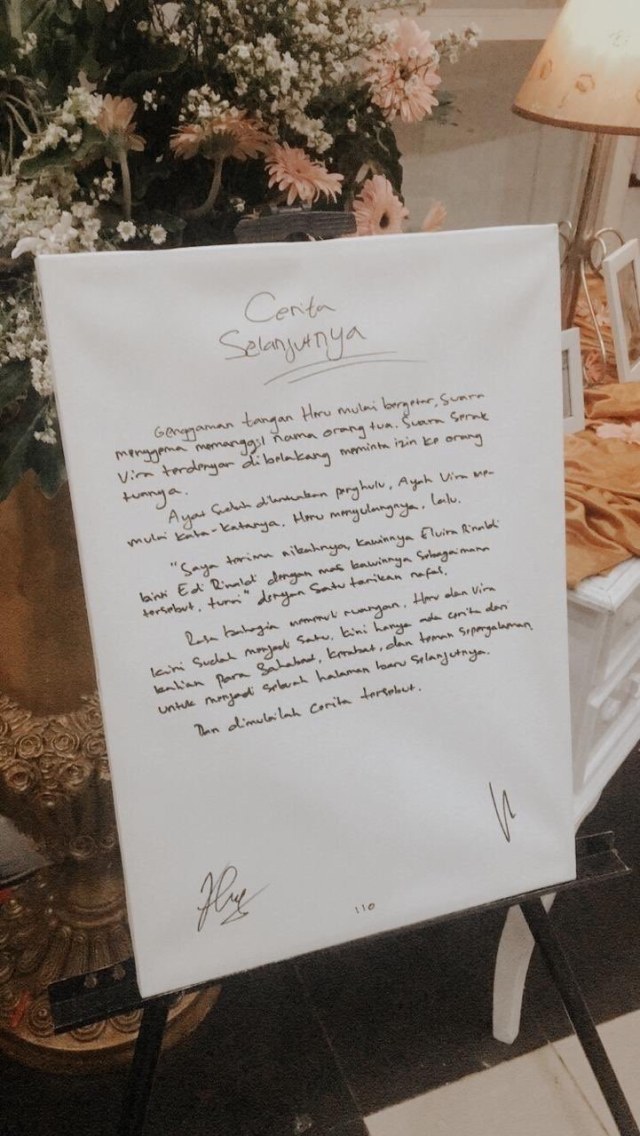 Cerita
Selanjutnya
Genggaman tangan Heru mulai bergetar, suara
menggema memanggil nama orang tua. Suara serak
Vira terdengar di belakang meminta izin ke orang
tuanya.
Ayat Sudah dibacakan penghulu, Ayah Vira me-
mulai kata-katanya, Heru mengulangnya, lalu.
"Saya terima nikahnya, kawinnya Elvira Rinaldi
binti Edi Rinaldi dengan mas kawinnya sebagaimana
tersebut, tunai" dengan satu tarikan nafas.
Rasa bahagia memenuhi ruangan. Heru dan Vira
kini sudah menjadi satu, kini hanya ada cerita dari
kalian para Sahabat, kerabat, dan teman sepengalaman
untuk menjadi sebuah halaman baru selanjutnya.
Dan dimulailah cerita tersebut.
110